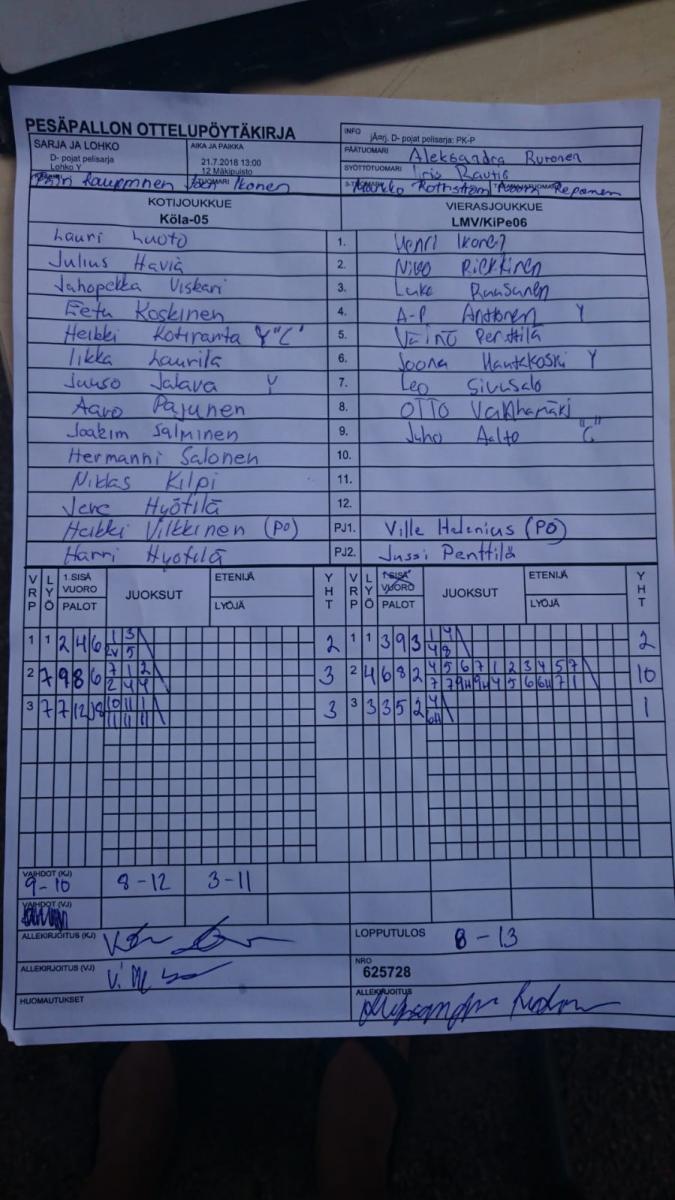 PESÄPALLON OTTELUPÖYTÄKIRJA
SARJA JA LOHKO
D- pojat pelisarja
Lohko Y
AIKA JA PAIKKA
21.7.2018 13:00
12 Mäkipuisto
INFO
jÄarj. D- pojat pelisarja: PK-P
PÄÄTUOMARI Aleksandra
SYÖTTÖTUOMARI Iris Rautio
Joen Ikonen
KOTIJOUKKUE
Köla-05
VIERASJOUKKUE
LMV/KiPe06
Lauri Luoto 1. Henri
Julius Havia 2. Niko
Juhopekka Viskari 3. Luka Ruusunen
Eetu Koskinen 4. A-P Anttonen Y
Heikki Kotiranta Y "C" 5. Väinö Penttilä
Iikka Laurila 6. Joona Hautakoski Y
Juuso Jalava Y 7. Leo Sivusalo
Aaro Pajunen 8. OTTO
Joakim Salminen 9. Juho Aalto "C"
Hermanni Salonen 10.
Niklas Kilpi 11.
Jere Hyötilä 12.
Heikki Vilkkinen (PO) PJ1. Ville Helenius (PO)
Harri Hyötilä PJ2. Jussi Penttilä
VRP LYÖ 1.SISÄ VUORO PALOT JUOKSUT ETENIJÄ LYÖJÄ YHT VRP LYÖ 1.SISÄ VUORO PALOT JUOKSUT ETENIJÄ LYÖJÄ YHT
1 1 2 4 6 1 3 2 1 1 3 9 3 1 4 2
5 4 8
2 7 9 8 6 7 1 2 3 2 4 6 8 2 4 5 6 7 1 2 3 4 5 7 10
2 4 4 7 7 9H 9H 4 5 6 6H 7 1
3 7 7 12 8 10 11 1 3 3 3 3 5 2 4 1
11 11 11 6H
VAIHDOT (KJ)
9-10 8-12 3-11
VAIHDOT (VJ)
ALLEKIRJOITUS (KJ)
LOPPUTULOS 8 - 13
ALLEKIRJOITUS (VJ)
NRO
625728
HUOMAUTUKSET
ALLEKIRJOITUS